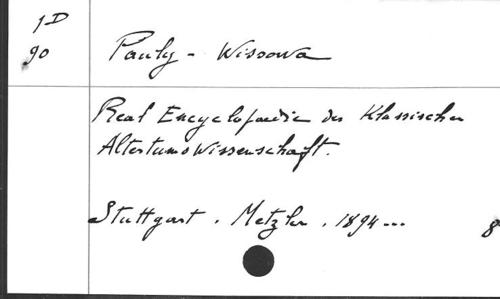 1D
90
Pauly - Wissowa
Real Encyclopædie der Klassischen
Altertumswissenschaft.
Stuttgart. Metzler. 1894...
8